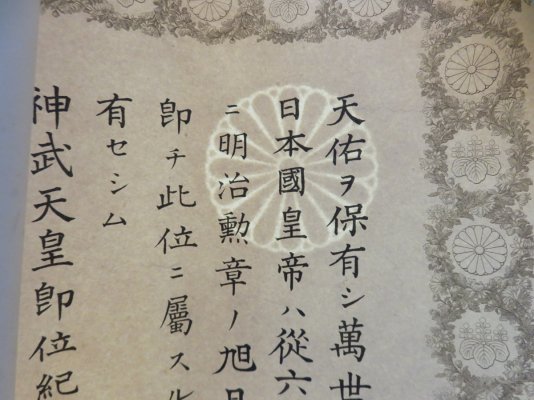 天佑ヲ保有シ萬世
日本國皇帝ハ從六
ニ明治勲章ノ旭日
卽チ此位ニ屬スル
有セシム
神武天皇卽位紀